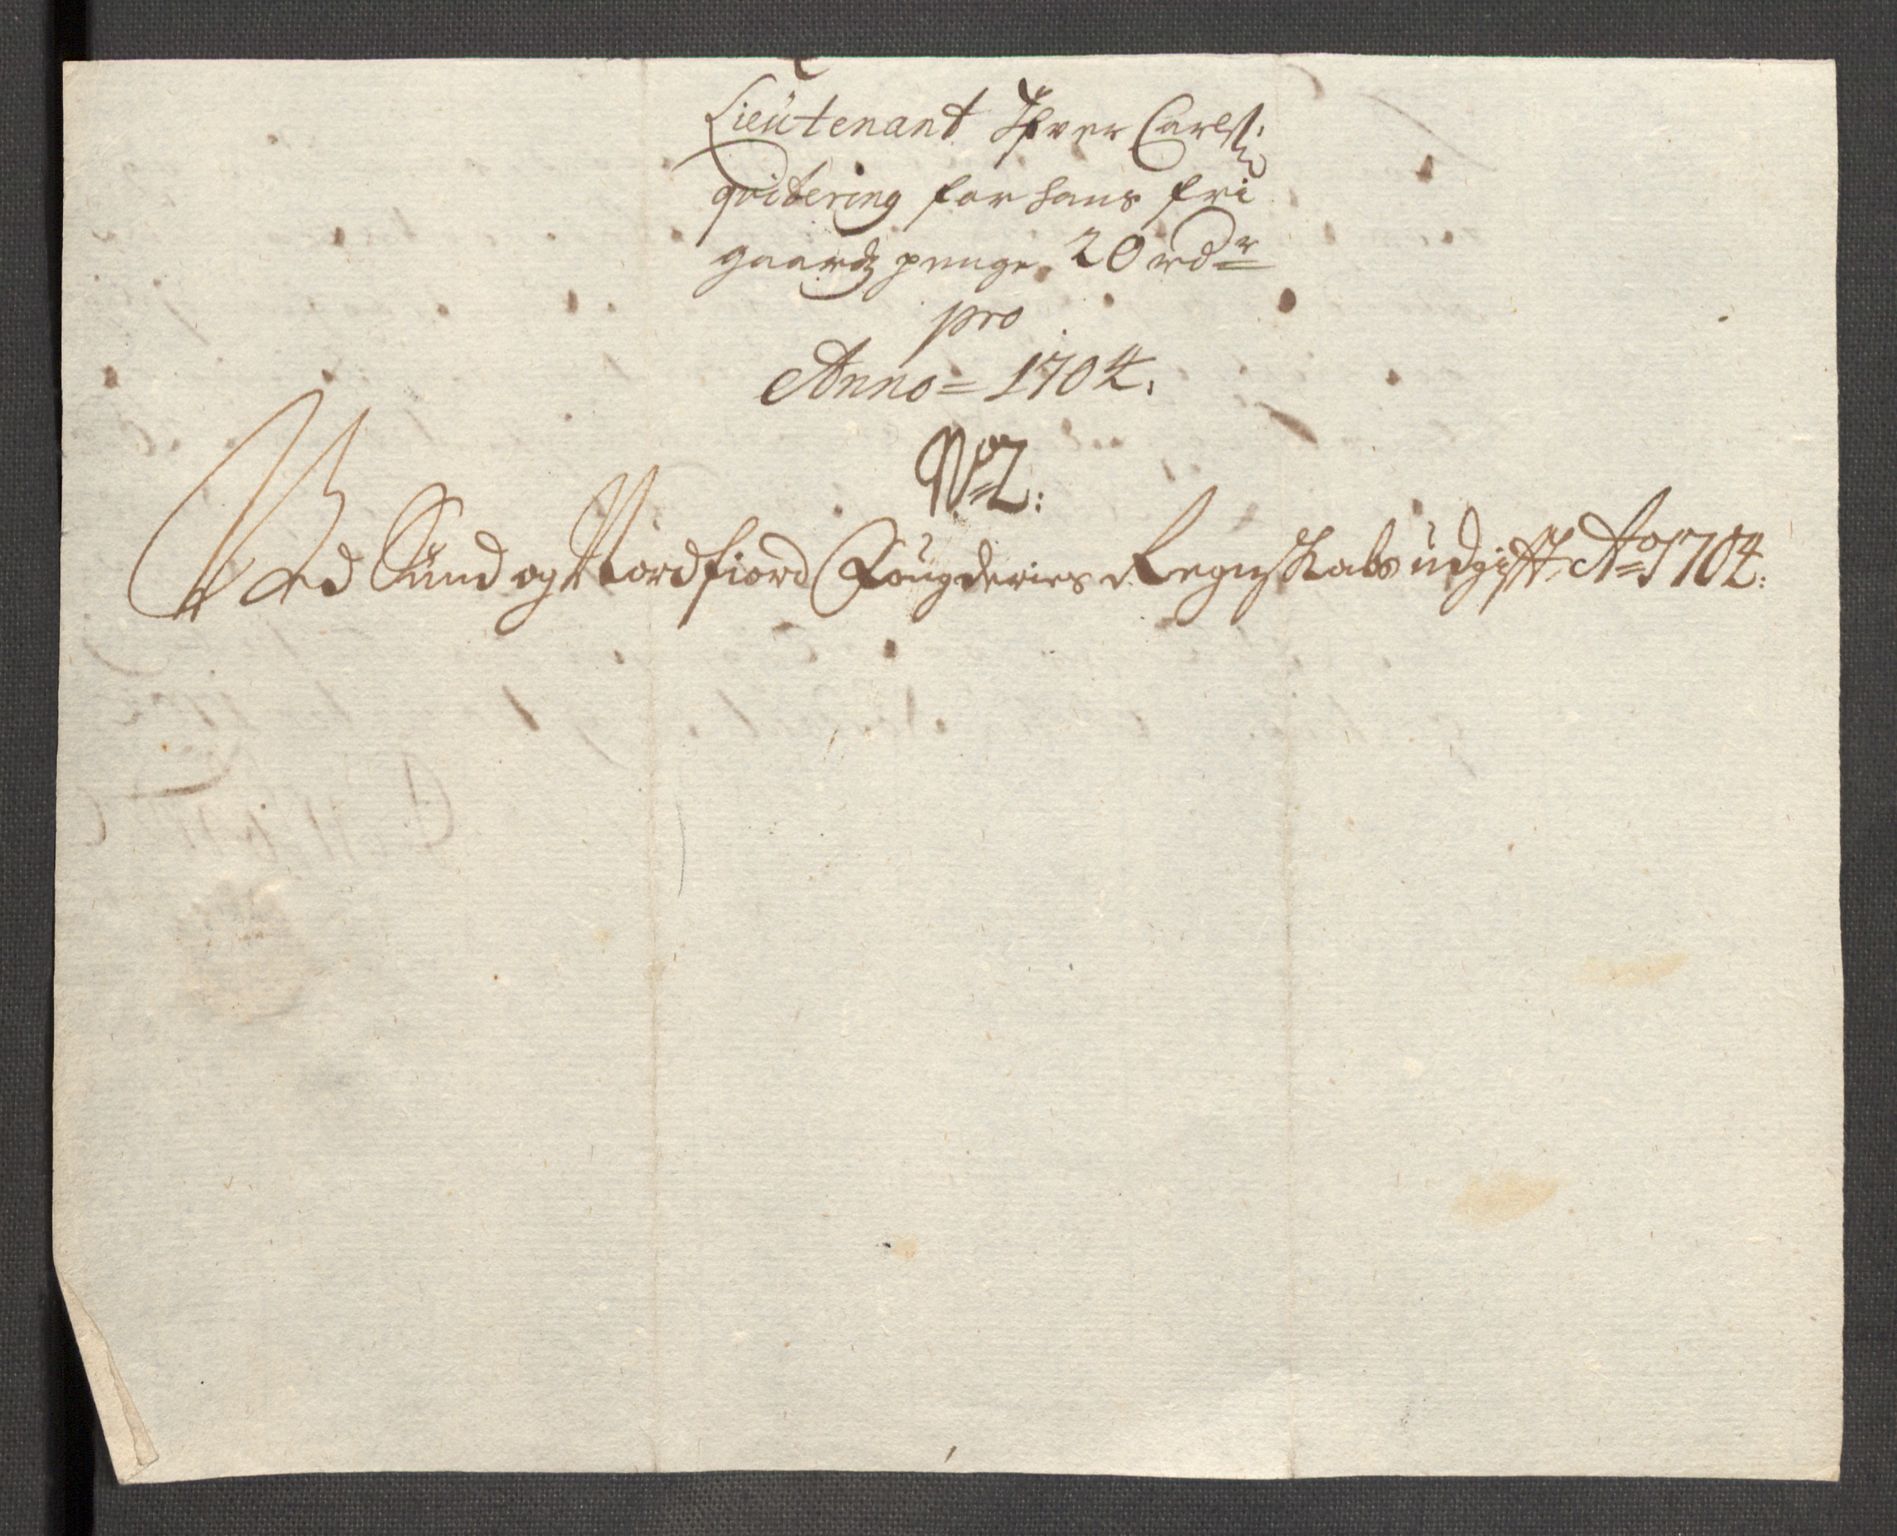 Lieutenant Ifver Carls:
qvitering for hans fri
gaards penge 20 rdr
pro
Anno = 1704.
No 2:
Ved Sund og Nordfiord Fougderies Regnskabs udgift Ao 1704: